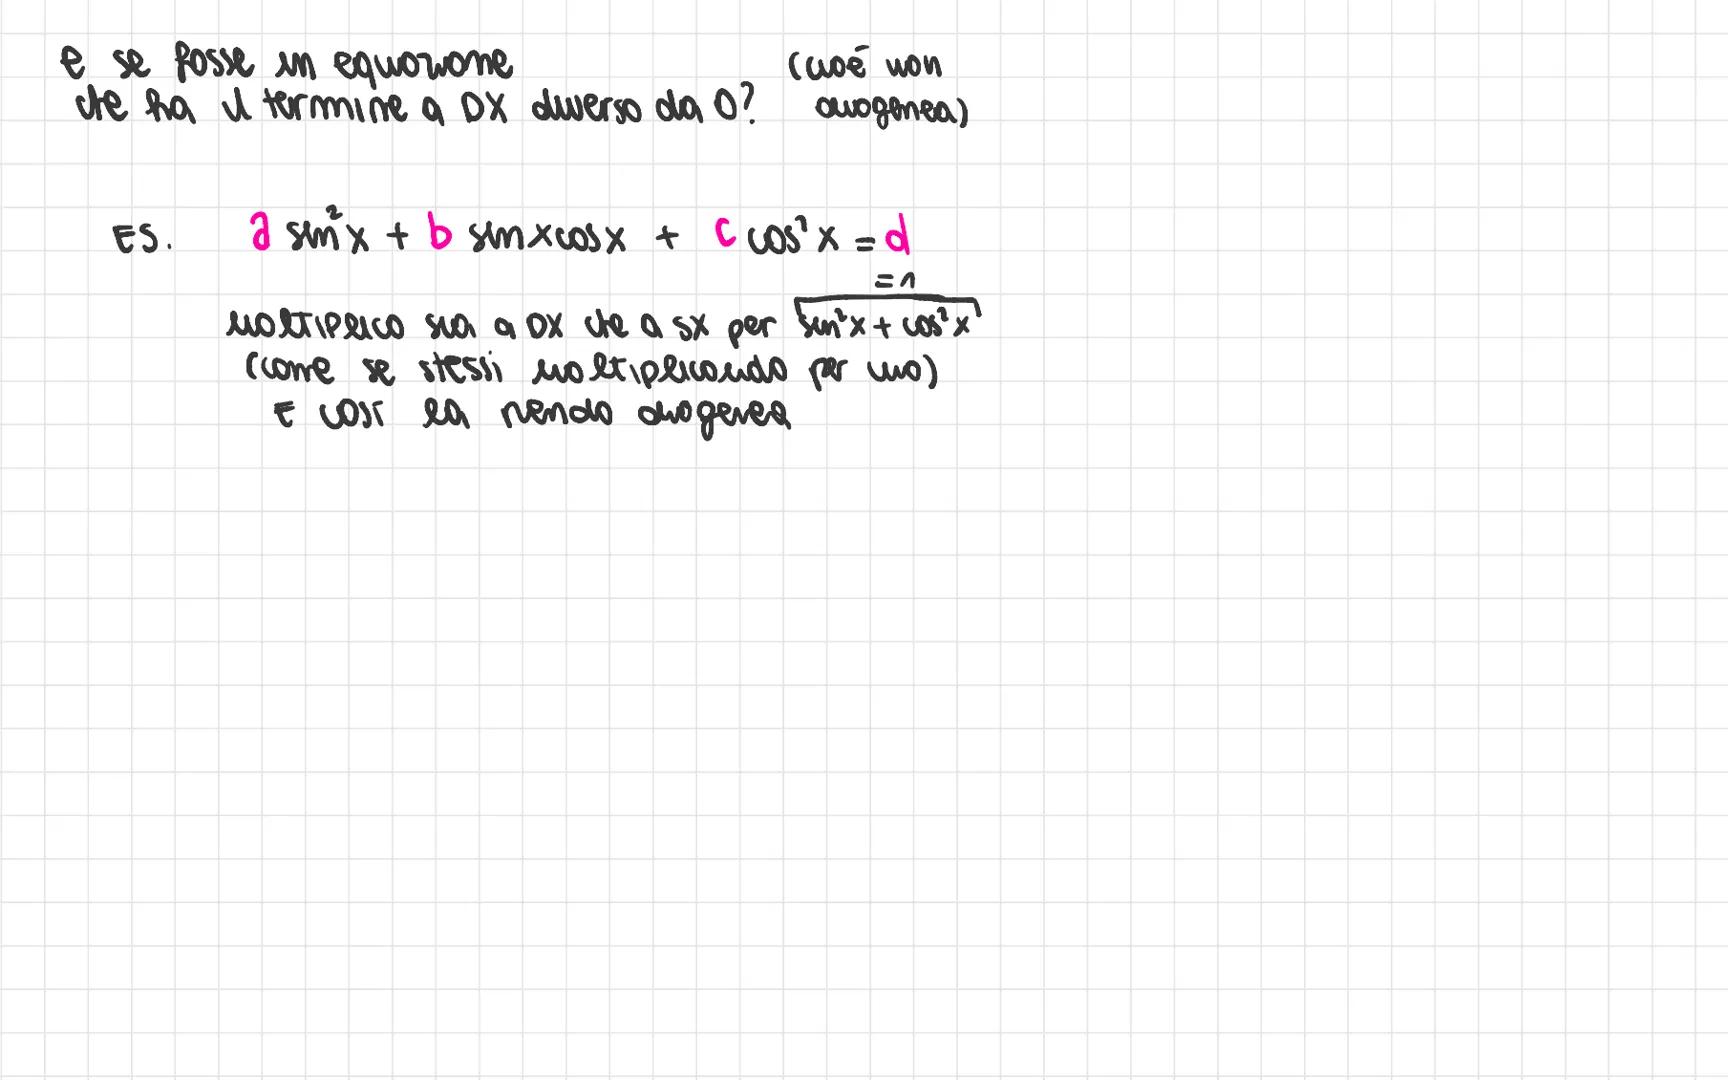 e se fosse un equazione (cioè non
che ha il termine a DX diverso da 0? omogenea)
ES. a sin²x + b sinxcosx + c cos²x = d
=1
moltiplico sia a DX che a SX per sin²x + cos²x
(come se stessi moltiplicando per uno)
E così la rendo omogenea